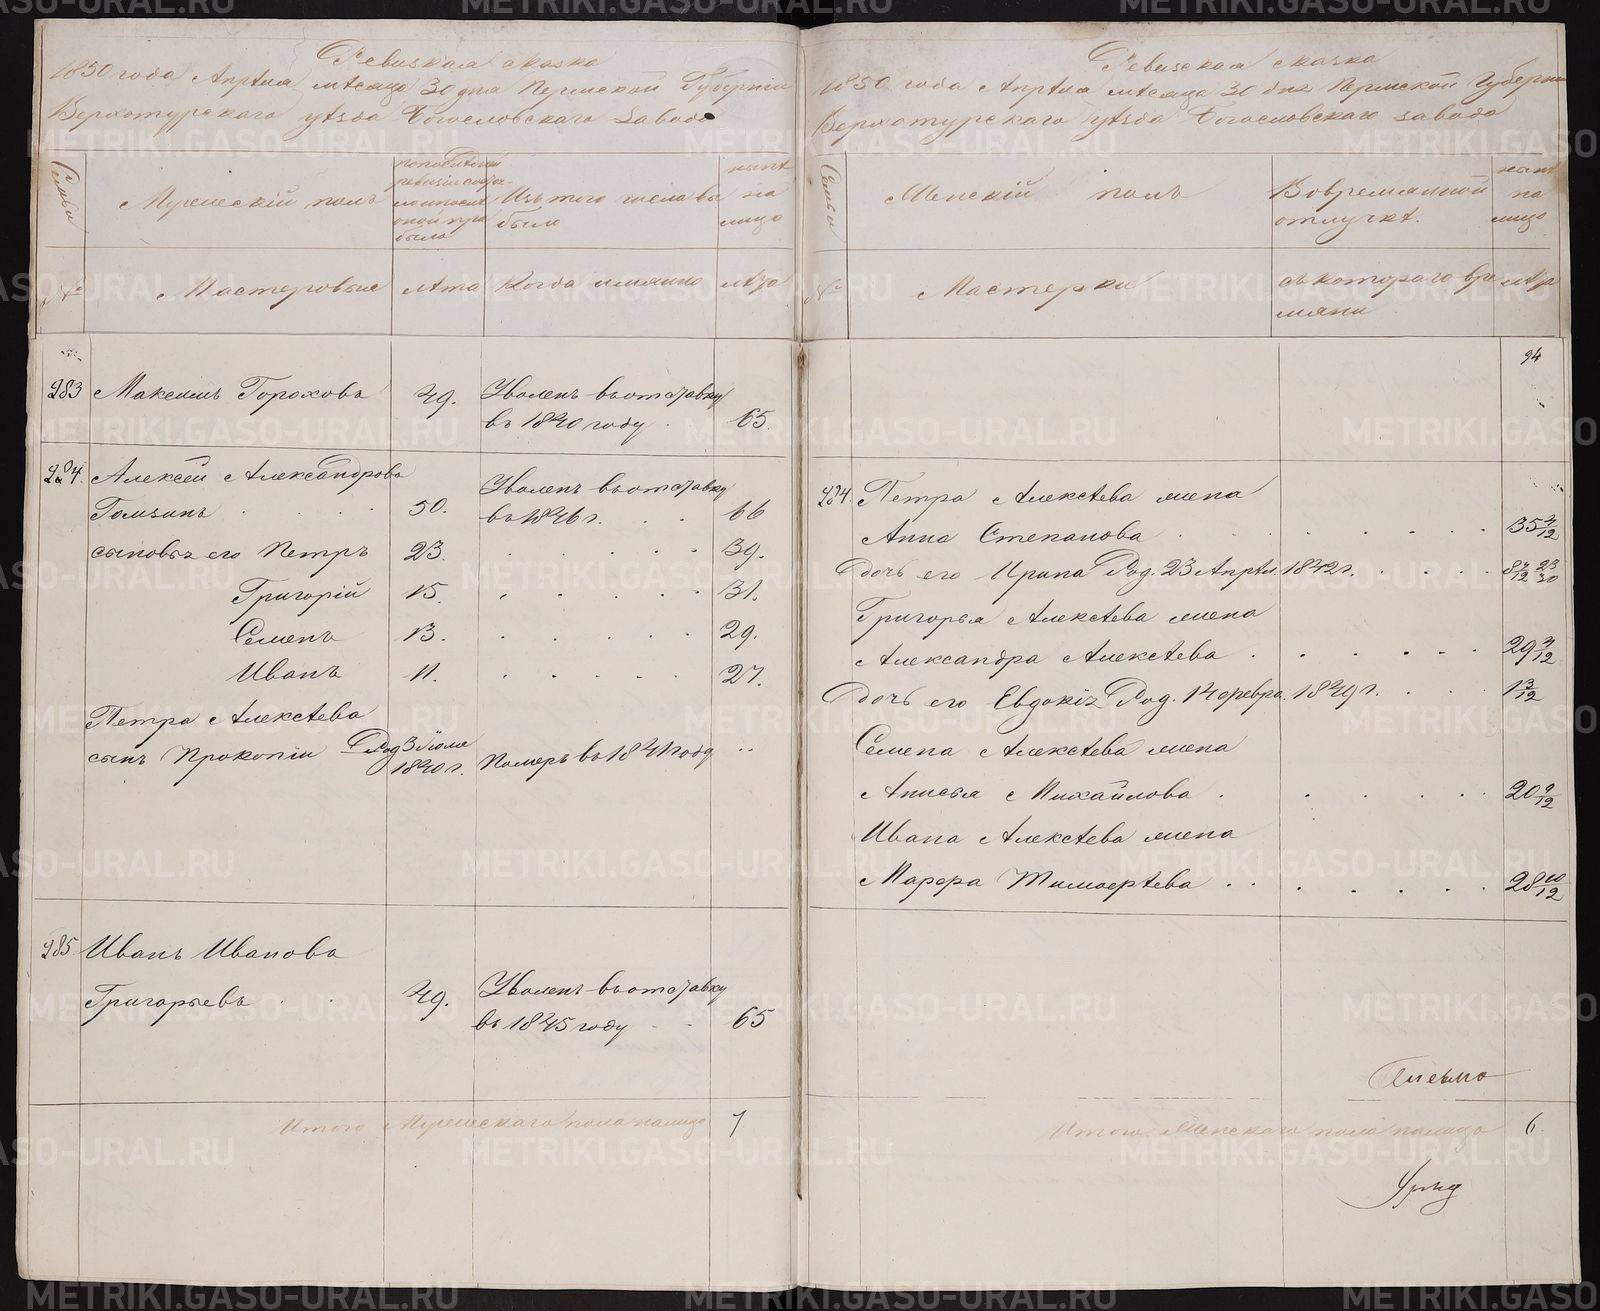 Ревизская сказка
1850 года Апрѣля мѣсяца 30 дня Пермской Губерніи
Верхотурскаго уѣзда Богословскаго Завода
Семьи
Мужескій полъ
по последней
ревизіи состоя-
ло и после
оной при
было
Изъ того числа вы
было
нынѣ
на
лицо
№
Мастеровые
лѣта
Когда имянно
лѣта
283
Максимъ Гороховъ
49.
Уволенъ въ отставку
въ 1840 году
65.
284.
Алексѣй Александрова
Гомзинъ
50.
Уволенъ въ отставку
въ 1846 г.
66
сыновья его Петръ
23.
39.
Григорій
15.
31.
Семенъ
13.
29.
Иванъ
11.
27.
Петра Алексѣева
сынъ Прокопій
Род 3 Июля
1840 г.
Померъ въ 1841 году
285.
Иванъ Иванова
Григорьевъ
49.
Уволенъ въ отставку
въ 1845 году
65
Итого Мужескаго пола налицо
7
Ревизская сказка
1850 года Апрѣля мѣсяца 30 дня Пермской Губерніи
Верхотурскаго уѣзда Богословскаго завода
Семьи
Женскій полъ
Во временной
отлучкѣ.
нынѣ
на
лицо
№
Мастерки
съ котораго вре
мяни
лѣта
94
284
Петра Алексѣева жена
Анна Степанова
35 4/12
дочь его Ирина Род. 23 Апрѣл. 1842 г.
Григорья Алексѣева жена
Александра Алексѣева
29 4/12
дочь его Евдокія Род. 14 февра. 1849 г.
1 3/12
Семена Алексѣева жена
Анисья Михайлова
20 9/12
Ивана Алексѣева жена
Марфа Тимофѣева
28 10/12
Итого Женскаго пола налицо
6
METRIKI.GASO-URAL.RU